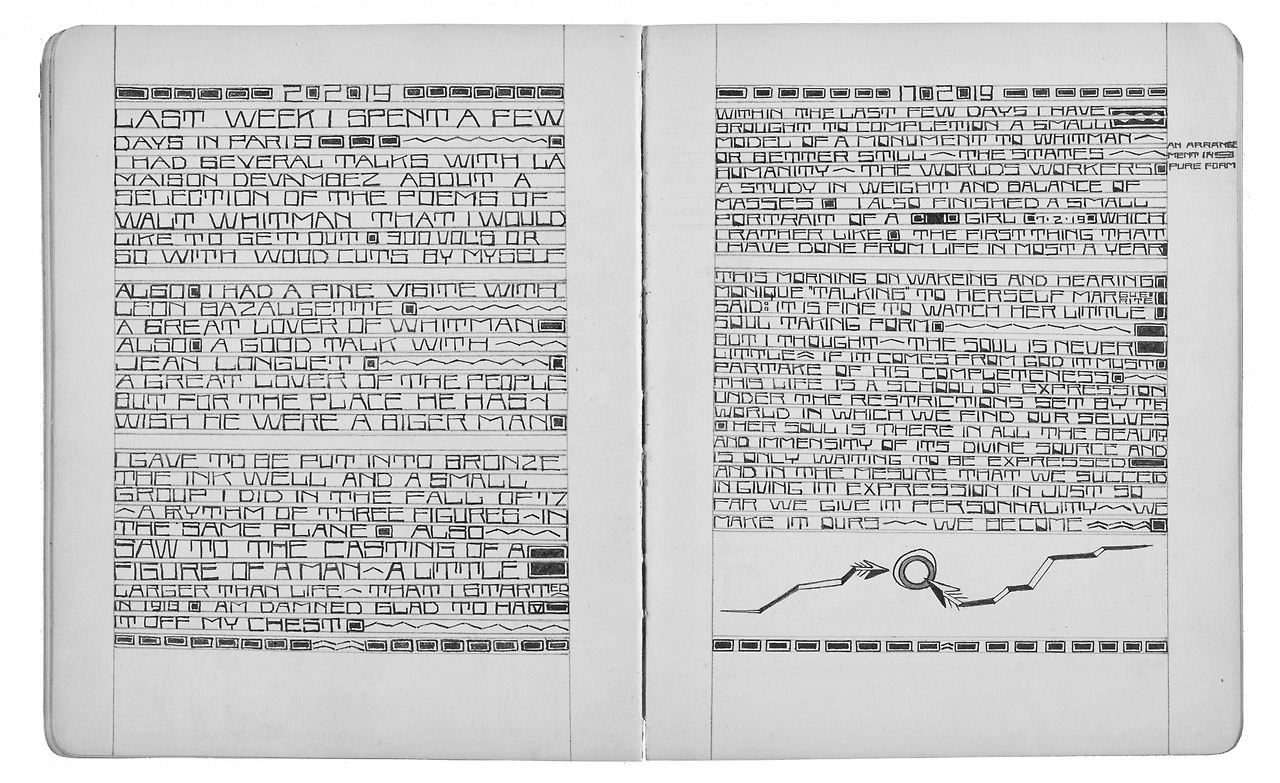 2·2·19
LAST WEEK I SPENT A FEW
DAYS IN PARIS
I HAD SEVERAL TALKS WITH LA
MAISON DEVAMBEZ ABOUT A
SELECTION OF THE POEMS OF
WALT WHITMAN THAT I WOULD
LIKE TO GET OUT 300 VOL'S OR
SO WITH WOOD CUTS BY MYSELF
ALSO I HAD A FINE VISITE WITH
LEON BAZALGETTE
A GREAT LOVER OF WHITMAN
ALSO A GOOD TALK WITH
JEAN LONGUET
A GREAT LOVER OF THE PEOPLE
BUT FOR THE PLACE HE HAS
WISH HE WERE A BIGER MAN
I GAVE TO BE PUT INTO BRONZE
THE INK WELL AND A SMALL
GROUP I DID IN THE FALL OF '17
A RYTHM OF THREE FIGURES IN
THE SAME PLANE ALSO
SAW TO THE CASTING OF A
FIGURE OF A MAN A LITTLE
LARGER THAN LIFE THAT I STARTED
IN 1913 AM DAMNED GLAD TO HAV
IT OFF MY CHEST
17·2·19
WITHIN THE LAST FEW DAYS I HAVE
BROUGHT TO COMPLETION A SMALL
MODEL OF A MONUMENT TO WHITMAN
OR BETTER STILL THE STATES
HUMANITY THE WORLDS WORKERS
A STUDY IN WEIGHT AND BALANCE OF
MASSES I ALSO FINISHED A SMALL
PORTRAIT OF A GIRL 7·2·19 WHICH
I RATHER LIKE THE FIRST THING THAT
I HAVE DONE FROM LIFE IN MOST A YEAR
AN ARRANGE
MENT IN
PURE FORM
THIS MORNING ON WAKEING AND HEARING
MONIQUE "TALKING" TO HERSELF MARGUERITE
SAID: IT IS FINE TO WATCH HER LITTLE
SOUL TAKING FORM
BUT I THOUGHT THE SOUL IS NEVER
LITTLE IF IT COMES FROM GOD IT MUST
PARTAKE OF HIS COMPLETENESS
THIS LIFE IS A SCHOOL OF EXPRESSION
UNDER THE RESTRICTIONS SET BY THE
WORLD IN WHICH WE FIND OUR SELVES
HER SOUL IS THERE IN ALL THE BEAUTY
AND IMMENSITY OF IT'S DIVINE SOURCE AND
IS ONLY WAITING TO BE EXPRESSED
AND IN THE MESURE THAT WE SUCCEED
IN GIVING IT EXPRESSION IN JUST SO
FAR WE GIVE IT PERSONNALITY WE
MAKE IT OURS WE BECOME